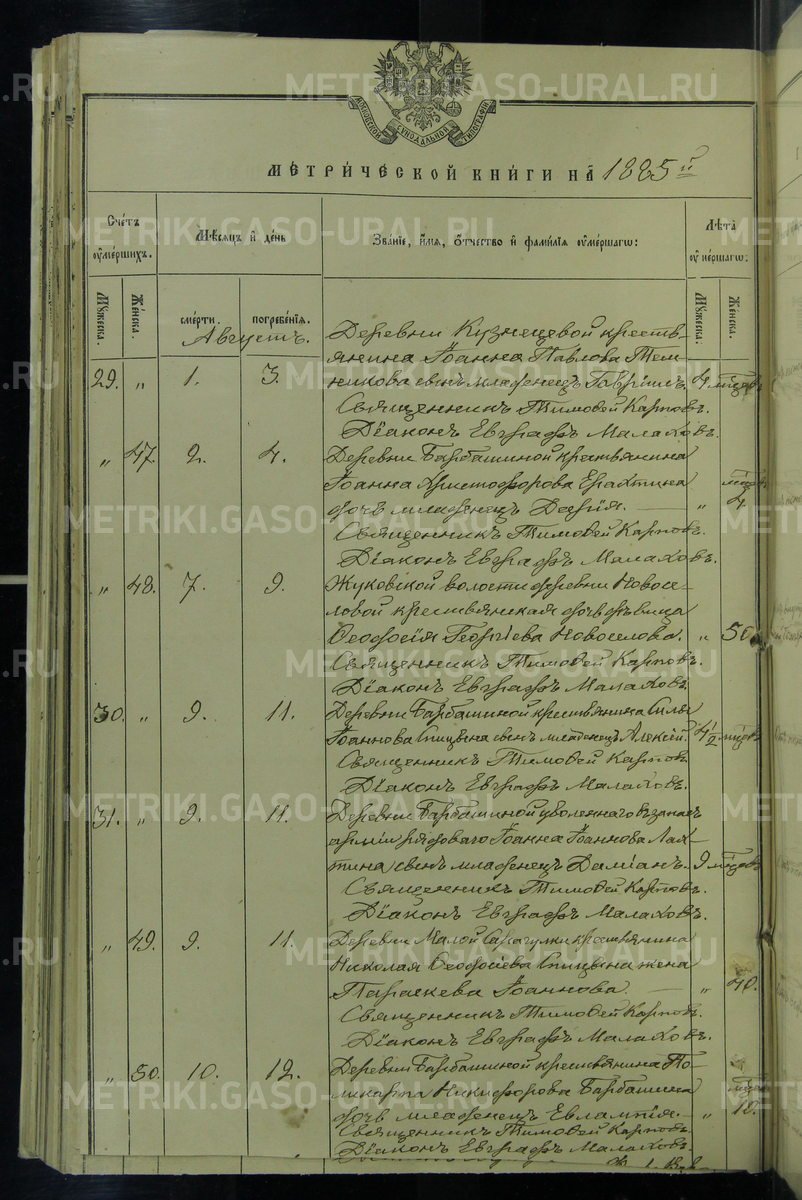 МОСКОВСКОЙ СѴНОДАЛЬНОЙ ТИПОГРАФІИ
МЕТРИЧЕСКОЙ КНИГИ НА 1885й
Счетъ оумершихъ.
Мѣсяцъ и день
Званіе, имя, отчество и фамилія оумершагѡ:
Лѣта оумершагѡ:
Мужеска. Женска.
смерти. погребенія.
Мужеска. Женска.
Августъ.
Деревни Кузнецовой крестъ-
янина Іоанна Павлова Тем-
29. „ 1. 3. никова сынъ младенецъ Гавріилъ. 4 мѣсяц.
Священникъ Тимоѳей Карповъ.
Діаконъ Евграфъ Малаховъ.
„ 47. 2. 4. Деревни Барбашиной крестьянина
Іоанна Христофорова Ерахтина
дочь младенецъ Дарія. „ 4
Священникъ Тимоѳей Карповъ.
Діаконъ Евграфъ Малаховъ.
„ 48. 7. 9. Жуковской волости деревни Новосе-
ловой крестьянская дочь дѣвица
Ѳеодосія Георгіева Новоселова. „ 50
Священникъ Тимоѳей Карповъ.
Діаконъ Евграфъ Малаховъ.
30. „ 9. 11. Деревни Барбашиной крестьянина Силы
Іоаннова Спицына сынъ младенецъ Алексій. 4½ мѣсяц.
Священникъ Тимоѳей Карповъ.
Діаконъ Евграфъ Малаховъ.
31. „ 9. 11. Деревни Барбашиной уволеннаго въ запасъ
арміи рядоваго Іоанна Іоаннова Лах-
тина сынъ младенецъ Даміанъ. 9 мѣсяц.
Священникъ Тимоѳей Карповъ.
Діаконъ Евграфъ Малаховъ.
„ 49. 9. 11. Деревни Малой Сарагулки крестьянина
Николая Ѳеодосіева Спицына жена
Параскева Іоаннова. „ 40.
Священникъ Тимоѳей Карповъ.
Діаконъ Евграфъ Малаховъ.
„ 50. 10. 12. Деревни Барбашиной крестьянина По-
ликарпа Никифорова Барбашина
дочь младенецъ Евлампія. „ 10.
Священникъ Тимоѳей Карповъ.
Діаконъ Евграфъ Малаховъ.
METRIKI.GASO-URAL.RU